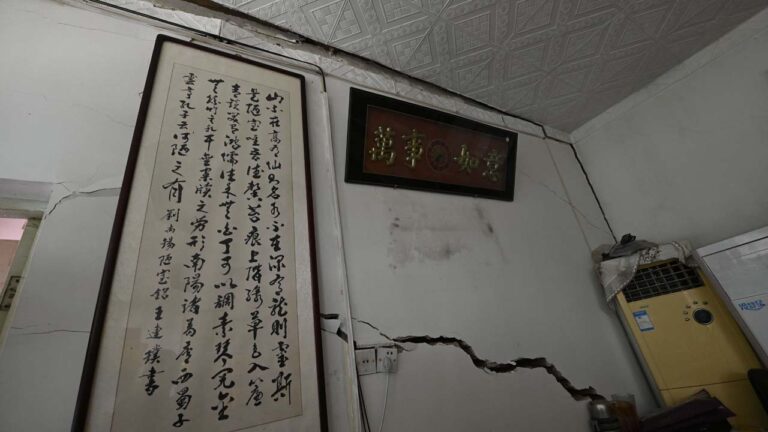 山不在高有仙則名水不在深有龍則靈斯
是陋室唯吾德馨苔痕上階綠草色入簾
青談笑有鴻儒往来無白丁可以調素琴閱金
經無絲竹之亂耳無案牘之勞形南陽諸葛廬西蜀子
雲亭孔子云何陋之有 劉禹錫陋室銘 王建樸書
萬事如意